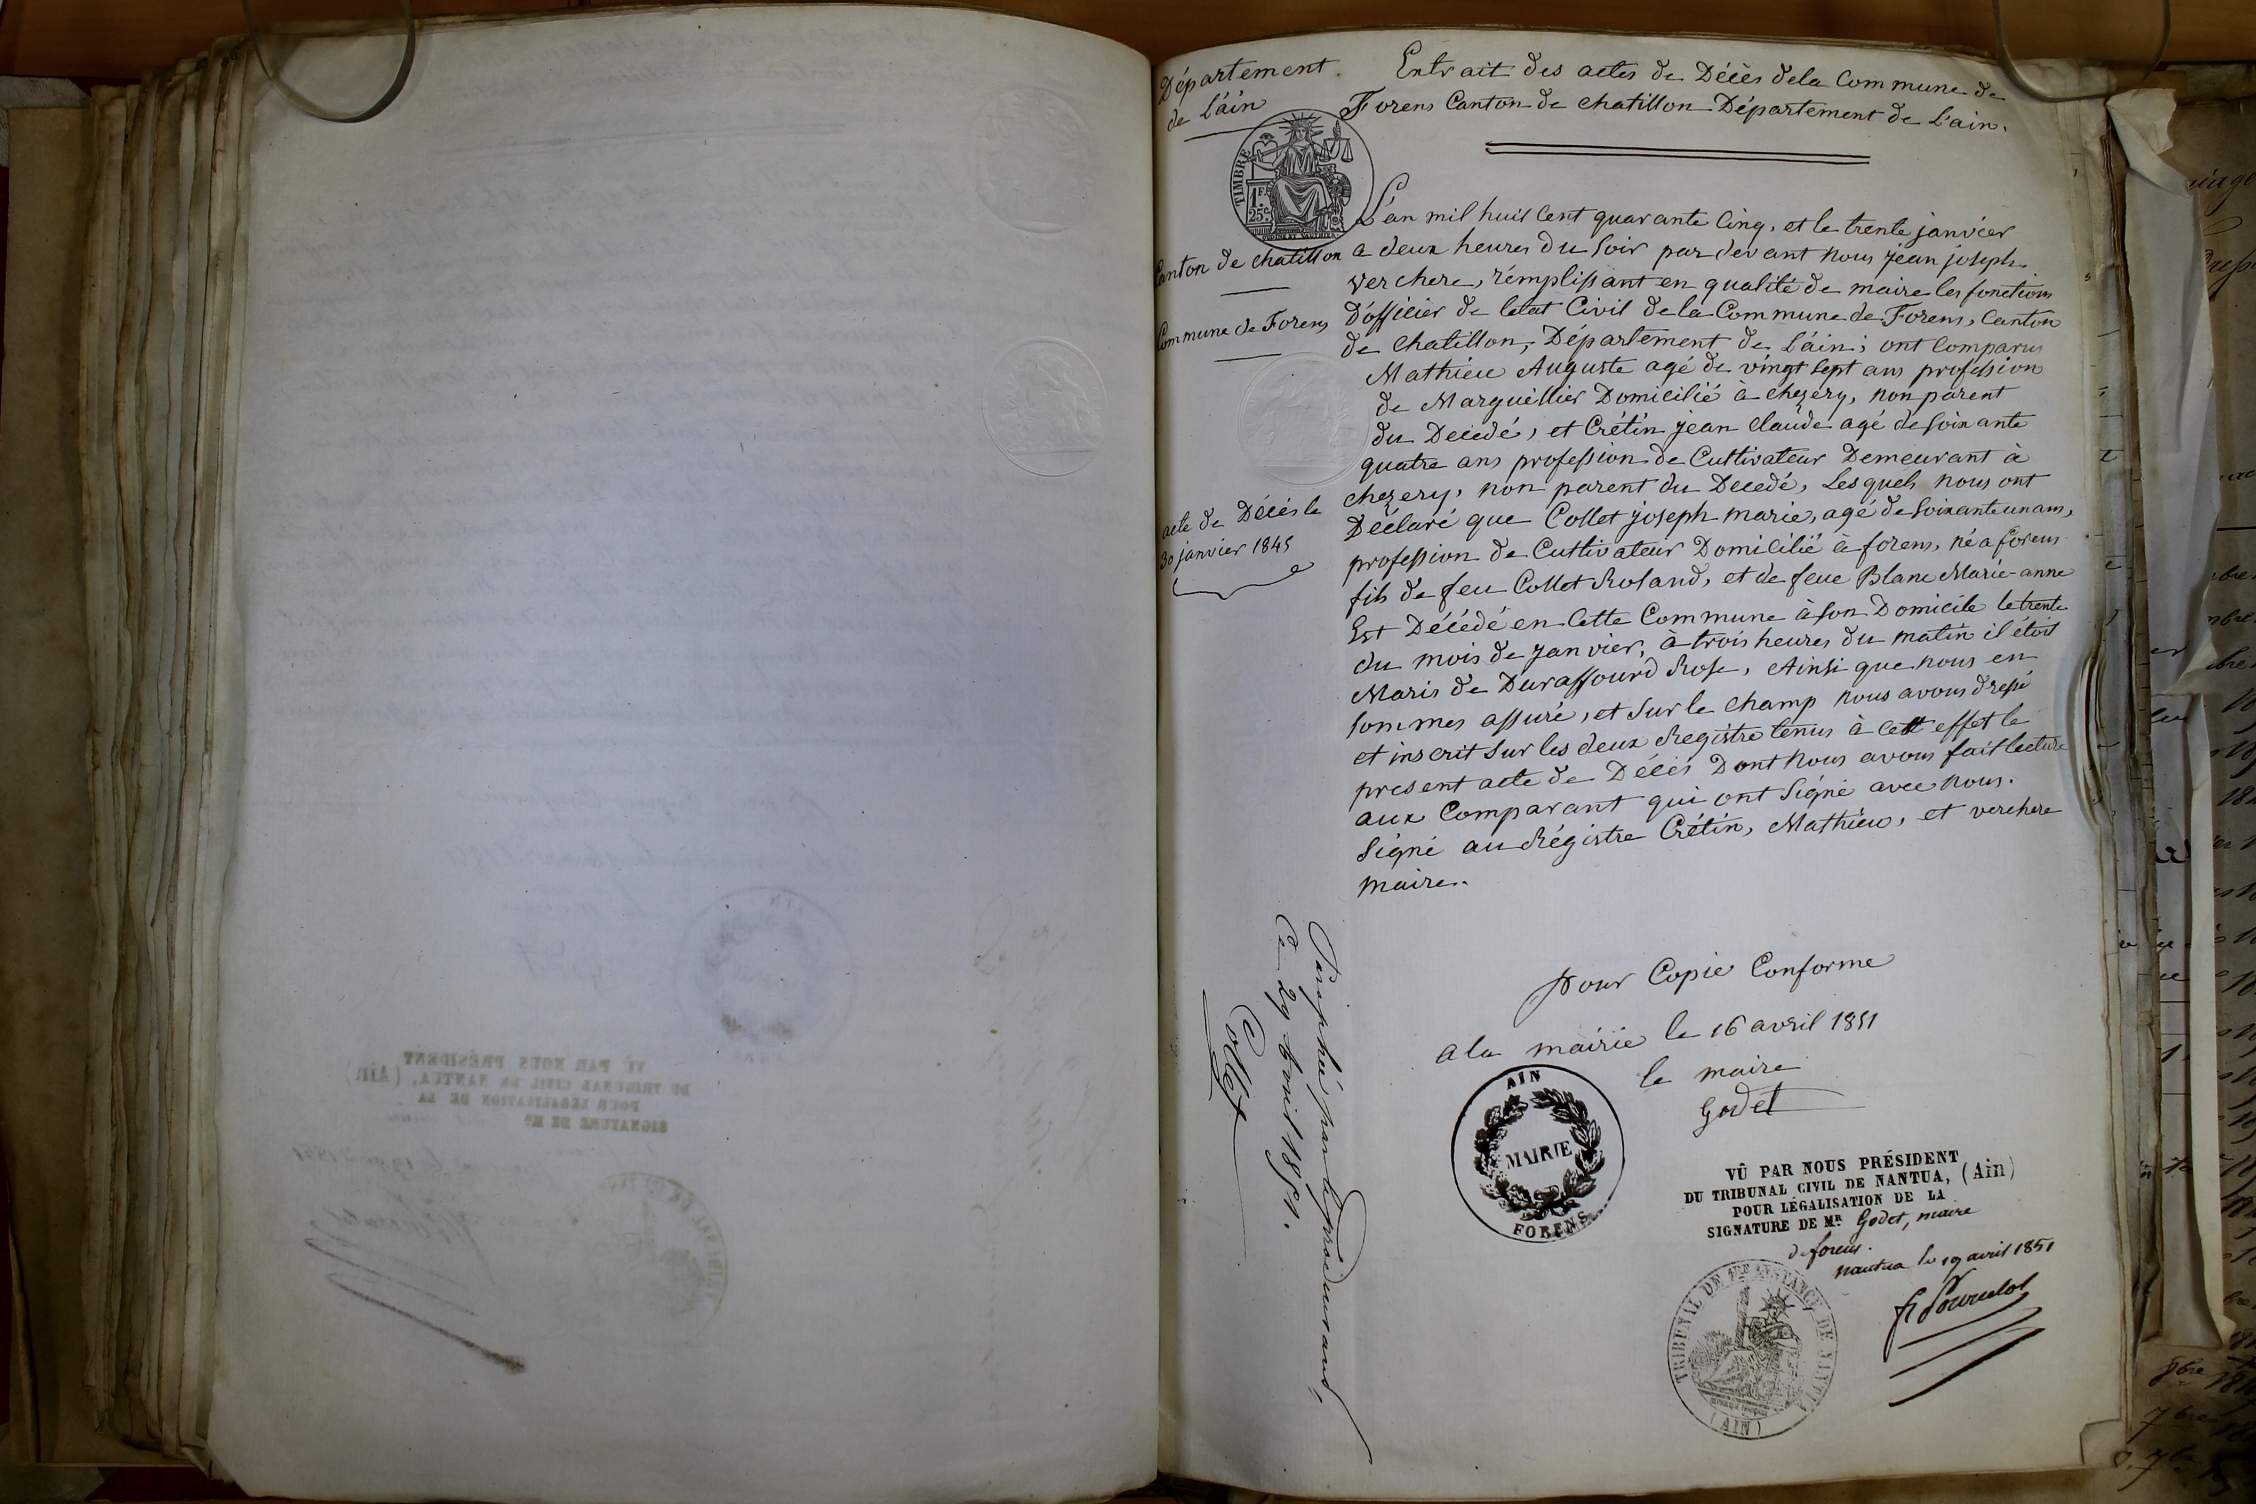 Département
de L'áin
Extrait des actes de Décès dela Commune de
Forens Canton de chatillon Département de L'ain.
TIMBRE
1F.
25c.
L'án mil huit Cent quarante Cinq, et le trente janvier
Canton de chatillon
a deux heures du Soir par devant nous jean joseph
Verchere, rémplissant en qualité de maire les fonctions
Commune de Forens
D'officier de letat Civil de la Commune de Forens, Canton
de Chatillon, Département de L'áin; ont Comparus
Mathieu Auguste agé de vingt Sept ans profession
de Marguillier Domicilié à chezery, non parent
du Decedé, et Crétin jean Claude agé de Soixante
quatre ans profession de Cultivateur Demeurant à
chezery, non parent du Decedé, Lesquels nous ont
acte de Décés le
30 janvier 1845
Déclaré que Collet joseph marie, agé de Soixante un ans,
profession de Cultivateur Domicilié à forens, né a forens
fils de feu Collet Roland, et de feue Blanc Marie-anne
Est Décédé en Cette Commune à Son Domicile le trente
du mois de janvier, à trois heures du matin il étoit
Maris de Duraffourd Rose, Ainsi que nous en
Sommes assuré, et Sur le champ nous avons dressé
et inscrit Sur les deux Registre tenus à cett effet le
present acte de Décés Dont nous avons fait lecture
aux Comparant qui ont Signé avec nous.
Signé au Régistre Crétin, Mathieu, et verchere
maire.
Pour Copie Conforme
a la mairie le 16 avril 1851
le maire
Godet
AIN
MAIRIE
FORENS
Paraphé par le procédurant,
Ce 29 Avril 1851.
Collet
VÛ PAR NOUS PRÉSIDENT
DU TRIBUNAL CIVIL DE NANTUA, (Ain)
POUR LÉGALISATION DE LA
SIGNATURE DE MR. Godet, maire
de forens.
Nantua le 19 avril 1851
TRIBUNAL DE 1RE INSTANCE DE NANTUA
(AIN)